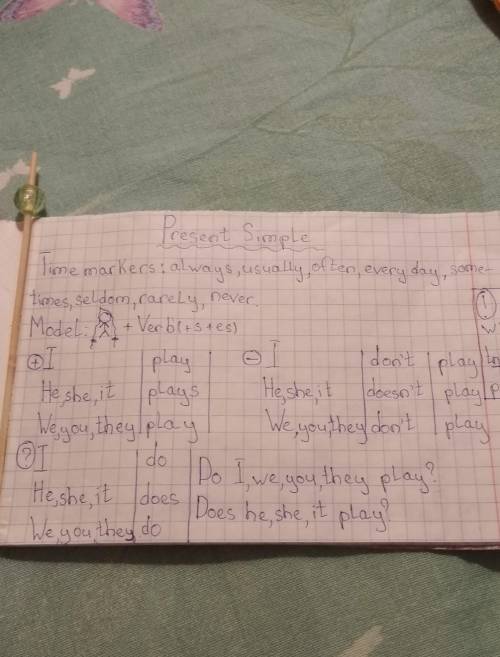 Present Simple
Time markers: always, usually, often, every day, some-
times, seldom, rarely, never.
Model: + Verb(+s+es)
+ I | play
He, she, it | plays
We, you, they | play
- I | don't | play
He, she, it | doesn't | play
We, you, they | don't | play
? I | do
He, she, it | does
We, you, they | do
Do I, we, you, they play?
Does he, she, it play?
!